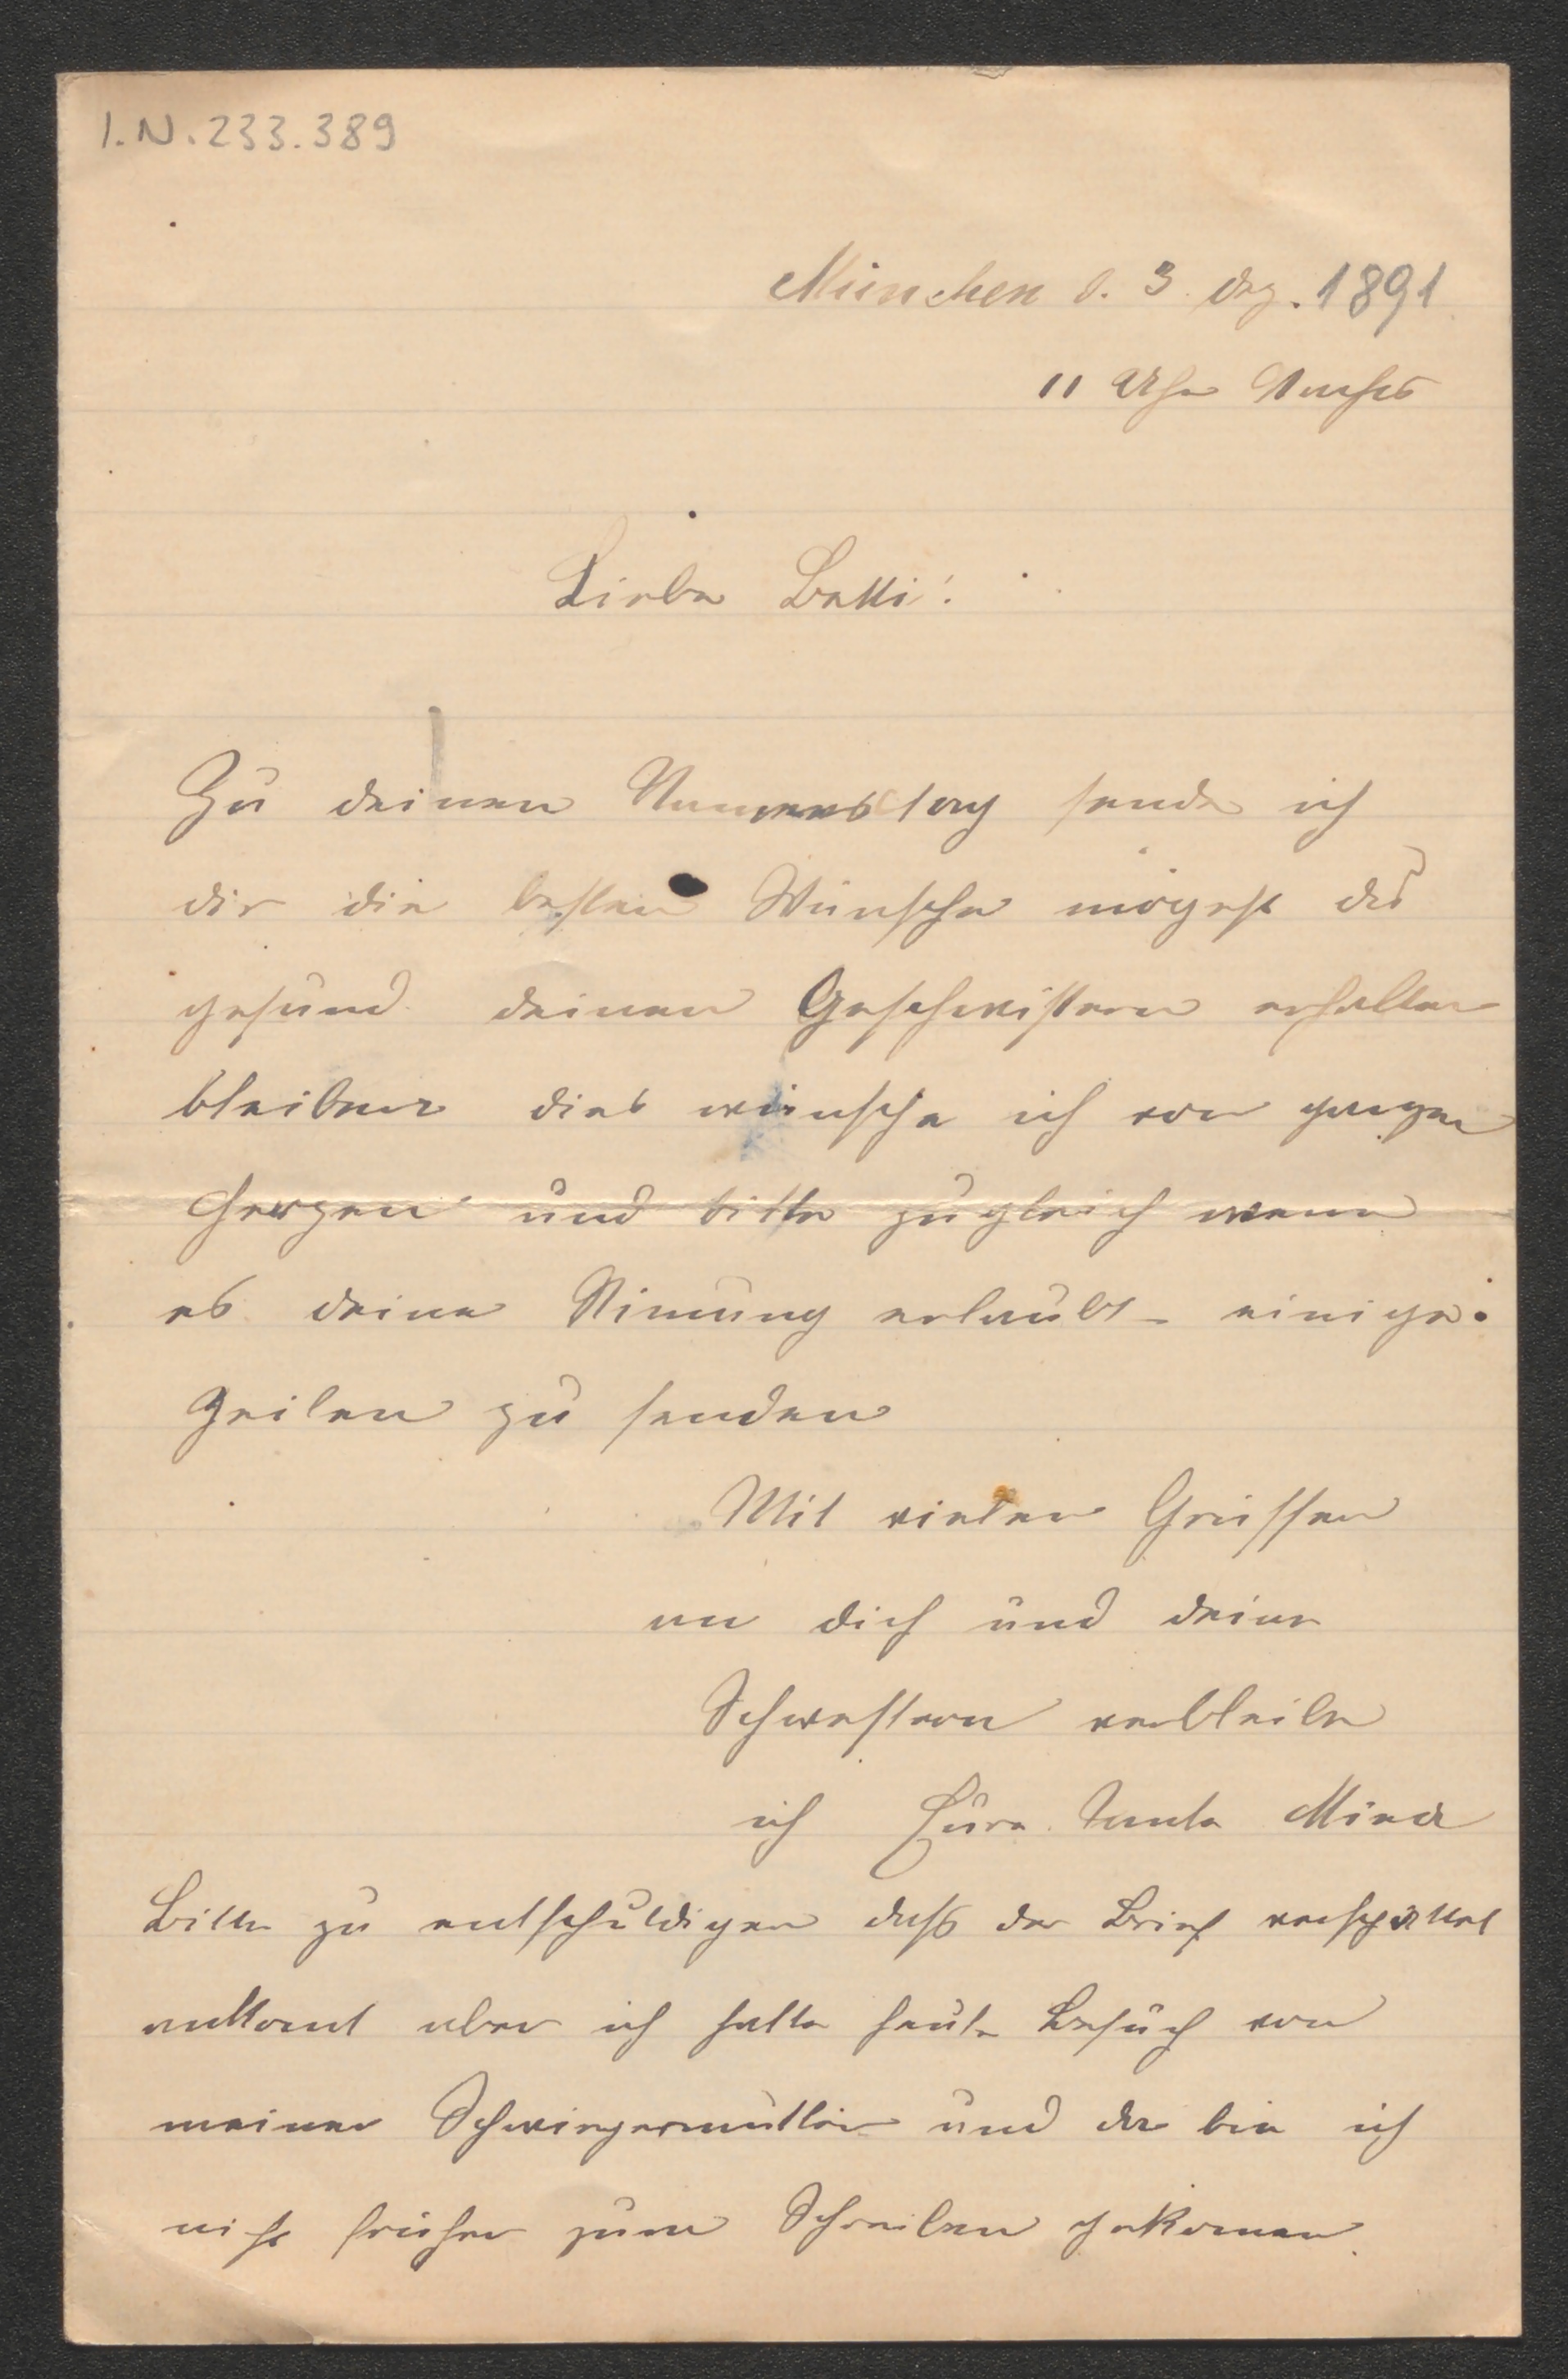 I.N. 233.389
München d. 3. Dez. 1891
11 Uhr Nachts
Liebe Betti!
Zu deinen Namenstag sende ich
dir die besten Wünsche mögest du
gesund deinen Geschwistern erhalten
bleiben dies wünsche ich von ganzen
Herzen und bitte zugleich wenn
es deine Stimung erlaubt einige
Zeilen zu senden
Mit vielen Grüssen
an dich und deine
Schwestern verbleibe
ich Eure Tante
Bitte zu entschuldigen daß der Brief verspättet
ankomt aber ich hatte heute Besuch von
meiner Schwiegermutter und da bin ich
nicht früher zum Schreiben gekomen.